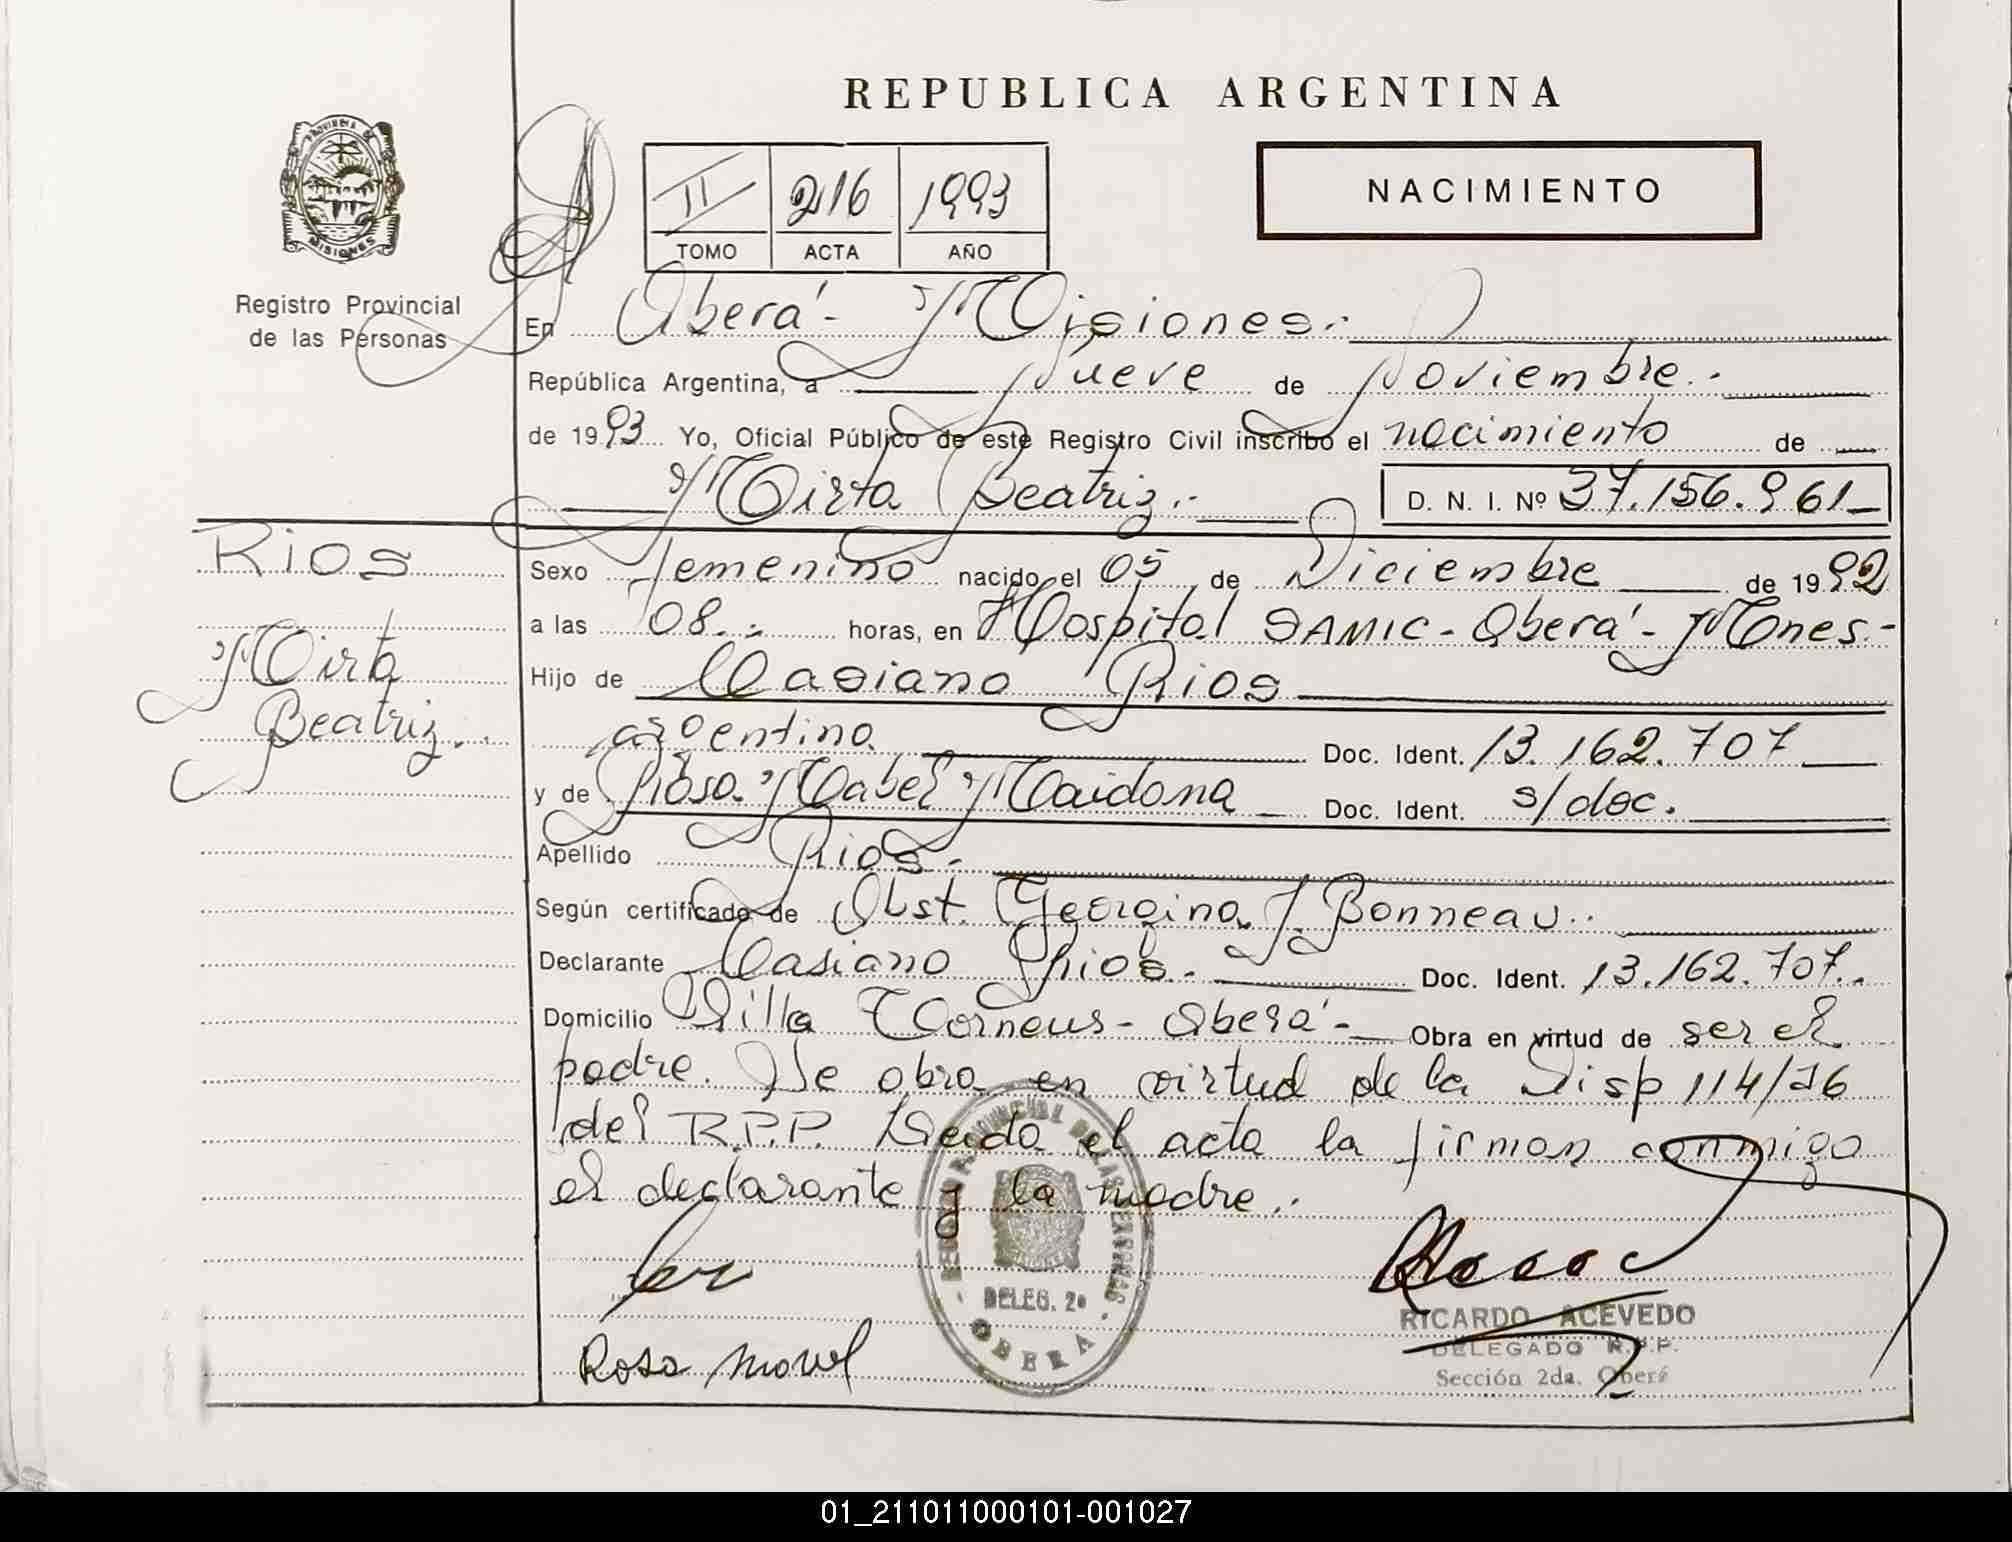 REPUBLICA ARGENTINA
PROVINCIA DE MISIONES
Registro Provincial
de las Personas
II 216 1993
TOMO ACTA AÑO
NACIMIENTO
En Oberá - Misiones.-
República Argentina, a Nueve de Noviembre.-
de 1993 Yo, Oficial Público de este Registro Civil inscribo el nacimiento de
Mirta Beatriz.- D. N. I. Nº 37.156.961
Rios
Mirta
Beatriz.
Sexo femenino nacido el 05 de Diciembre de 1992
a las 08.- horas, en Hospital SAMIC - Oberá - Mnes.-
Hijo de Casiano Rios
argentino Doc. Ident. 13.162.707
y de Rosa Mabel Maidana Doc. Ident. s/doc.
Apellido Rios.-
Según certificado de Obst. Georgina J. Bonneau.
Declarante Casiano Rios.- Doc. Ident. 13.162.707.
Domicilio Villa Torneus - Oberá - Obra en virtud de ser el
padre. Se obra en virtud de la Disp 114/76
del R.P.P. Leída el acta la firman conmigo
el declarante y la madre.
REGISTRO PROVINCIAL DE LAS PERSONAS
DELEG. 2a
OBERA
RICARDO ACEVEDO
DELEGADO R.P.P.
Sección 2da. Oberá
Rosa
01_211011000101-001027